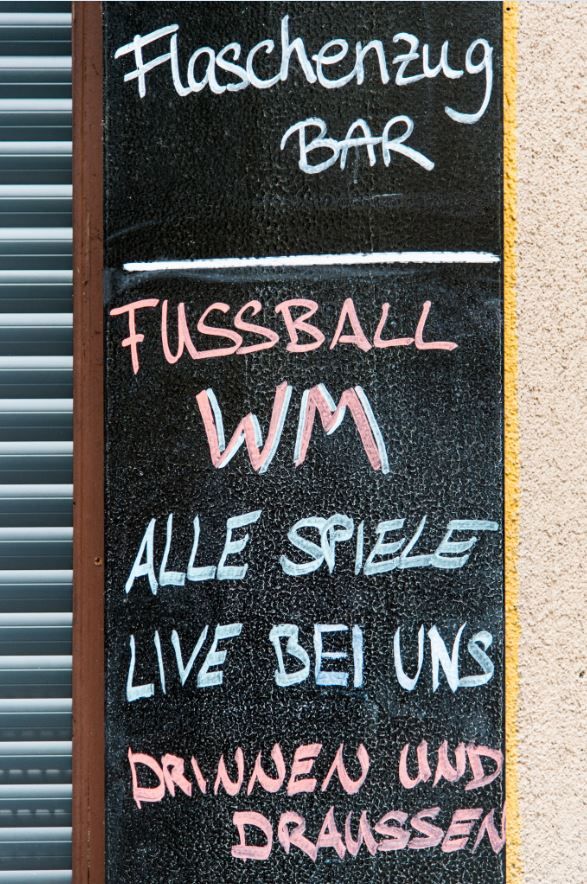 Flaschenzug
BAR
FUSSBALL
WM
ALLE SPIELE
LIVE BEI UNS
DRINNEN UND
DRAUSSEN